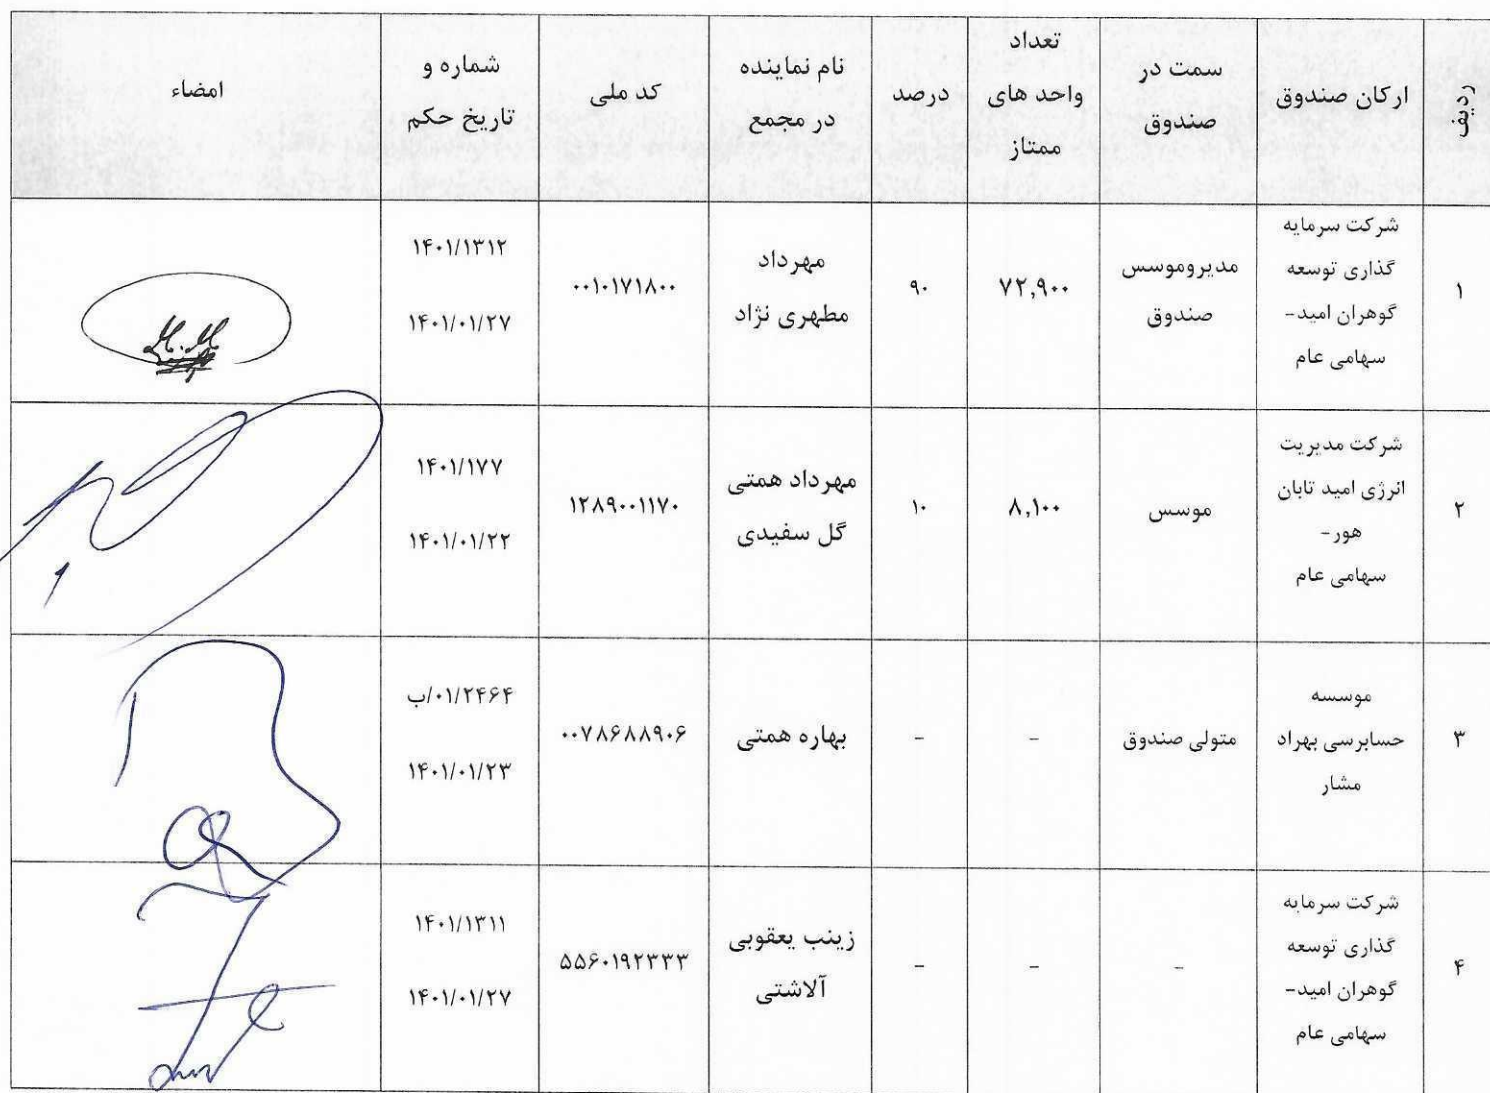 ردیف
ارکان صندوق
سمت در
صندوق
تعداد
واحد های
صندوق
ممتاز
درصد
نام نماینده
در مجمع
کد ملی
شماره و
تاریخ حکم
امضاء
۱
شرکت سرمایه
گذاری توسعه
گوهران امید-
سهامی عام
مدیروموسس
صندوق
۷۲,۹۰۰
۹۰
مهرداد
مطهری نژاد
۰۰۱۰۱۷۱۸۰۰
۱۴۰۱/۱۳۱۲
۱۴۰۱/۰۱/۲۷
۲
شرکت مدیریت
انرژی امید تابان
هور-
سهامی عام
موسس
۸,۱۰۰
۱۰
مهرداد همتی
گل سفیدی
۱۲۸۹۰۰۱۱۷۰
۱۴۰۱/۱۷۷
۱۴۰۱/۰۱/۲۲
۳
موسسه
حسابرسی بهراد
مشار
متولی صندوق
-
-
بهاره همتی
۰۰۷۸۶۸۸۹۰۶
۰۱/۲۴۶۴/ب
۱۴۰۱/۰۱/۲۳
۴
شرکت سرمایه
گذاری توسعه
گوهران امید-
سهامی عام
-
-
-
زینب یعقوبی
آلاشتی
۵۵۶۰۱۹۲۳۳۳
۱۴۰۱/۱۳۱۱
۱۴۰۱/۰۱/۲۷